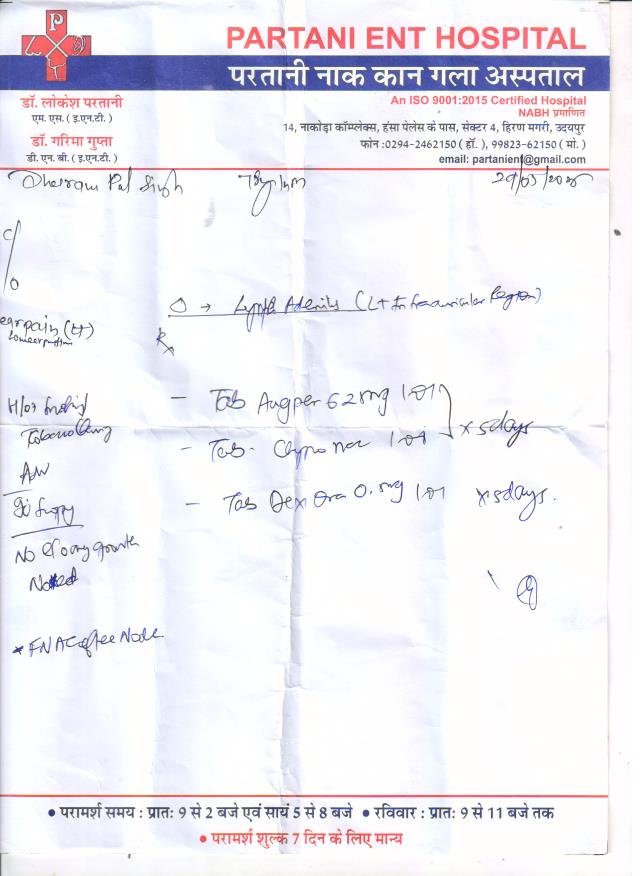 PARTANI ENT HOSPITAL
परतानी नाक कान गला अस्पताल
डॉ. लोकेश परतानी
एम. एस. ( इ.एन.टी. )
डॉ. गरिमा गुप्ता
डी. एन. बी. ( इ.एन.टी. )
An ISO 9001:2015 Certified Hospital
NABH प्रमाणित
14, नाकोड़ा कॉम्प्लेक्स, हंसा पेलेस के पास, सेक्टर 4, हिरण मगरी, उदयपुर
फोन :0294-2462150 ( हॉ. ), 99823-62150 ( मो. )
email: partanient@gmail.com
Pal Singh
c/o
Lymph Adenitis (Lt Region)
earpain (Lt)
Rx
- Tab 1-0-1
- Tab. 1-0-1 x 5days
- Tab Dexora 0.5mg 1-0-1 x 5days.
No growth
Noted
* FNAC of the Node
• परामर्श समय : प्रातः 9 से 2 बजे एवं सायं 5 से 8 बजे • रविवार : प्रातः 9 से 11 बजे तक
• परामर्श शुल्क 7 दिन के लिए मान्य